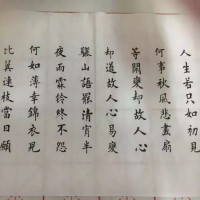 人生若只如初見
何事秋風悲畫扇
等閑變却故人心
却道故人心易變
驪山語罷清宵半
夜雨霖鈴終不怨
何如薄幸錦衣兒
比翼連枝當日願